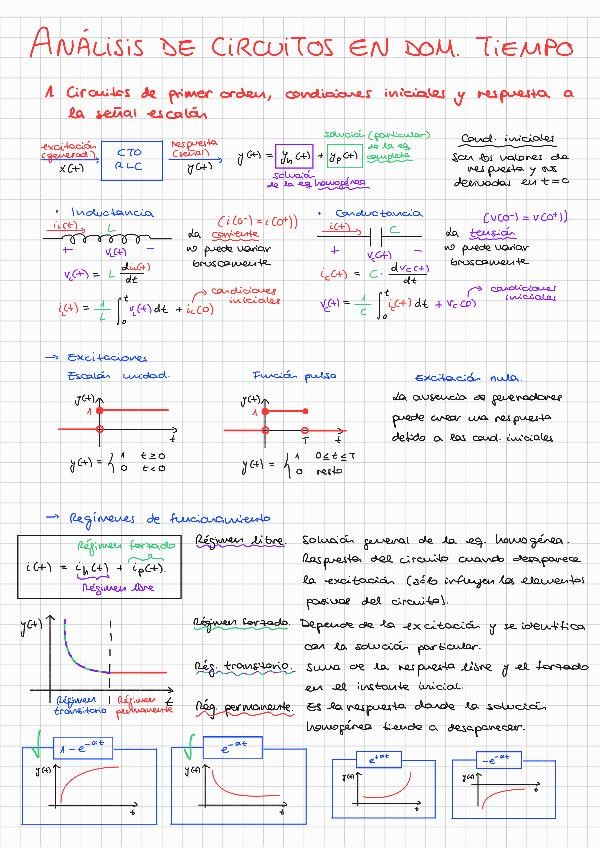 ANÁLISIS DE CIRCUITOS EN DOM. TIEMPO
1. Circuitos de primer orden, condiciones iniciales y respuesta a
la señal escalón
excitación
(generad.)
x(t)
CTO
RLC
respuesta
(señal)
y(t)
y(t) = yh(t) + yp(t)
solución (particular)
de la eq
completa
solución
de la eq homogénea
Cond. iniciales
Son los valores de
respuesta y sus
derivadas en t=0
· Inductancia
iL(t) L
+ vL(t) −
vL(t) = L diL(t)/dt
iL(t) = 1/L ∫₀ᵗ vL(t) dt + iL(0)
condiciones
iniciales
(i(0-) = i(0+))
La corriente
no puede variar
bruscamente
· Conductancia
i(t) C
+ vC(t) −
iC(t) = C · dvC(t)/dt
vC(t) = 1/C ∫₀ᵗ iC(t) dt + vC(0)
condiciones
iniciales
(v(0-) = v(0+))
La tensión
no puede variar
bruscamente
→ Excitaciones
Escalón unidad.
y(t)
1
t
y(t) = { 1 t≥0
0 t<0
Función pulso
y(t)
1
T t
y(t) = { 1 0≤t≤T
0 resto
Excitación nula.
La ausencia de generadores
puede crear una respuesta
debido a las cond. iniciales
→ Regímenes de funcionamiento
Régimen forzado
i(t) = ih(t) + ip(t).
Régimen libre
Régimen libre. Solución general de la eq. homogénea.
Respuesta del circuito cuando desaparece
la excitación (sólo influyen los elementos
pasivos del circuito).
Régimen forzado. Depende de la excitación y se identifica
con la solución particular.
Rég. transitorio. Suma de la respuesta libre y el forzado
en el instante inicial.
Rég. permanente. Es la respuesta donde la solución
homogénea tiende a desaparecer.
y(t)
t
Régimen
transitorio
Régimen
permanente
√ 1-e^-αt
y(t)
t
√ e^-αt
y(t)
t
e^+αt
y(t)
t
-e^-αt
y(t)
t